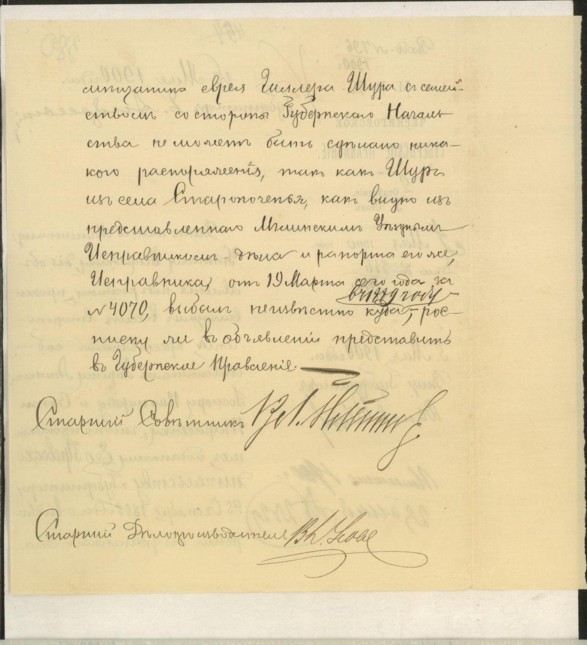 мѣщанина еврея Гиллера Шура съ семей-
ствомъ со стороны Губернскаго Началь-
ства не можетъ быть сдѣлано ника-
кого распоряженія, такъ какъ Шуръ
изъ села Старопочепья, какъ видно изъ
представленнаго Мглинскимъ Уѣзднымъ
Исправникомъ дѣла и рапорта его же,
Исправника, отъ 19 Марта сего года за
въ 1889 году
№ 4070, выбылъ неизвѣстно куда, рос-
писку же въ объявленіи представить
въ Губернское Правленіе.
Старшій Совѣтникъ
Старшій Дѣлопроизводитель